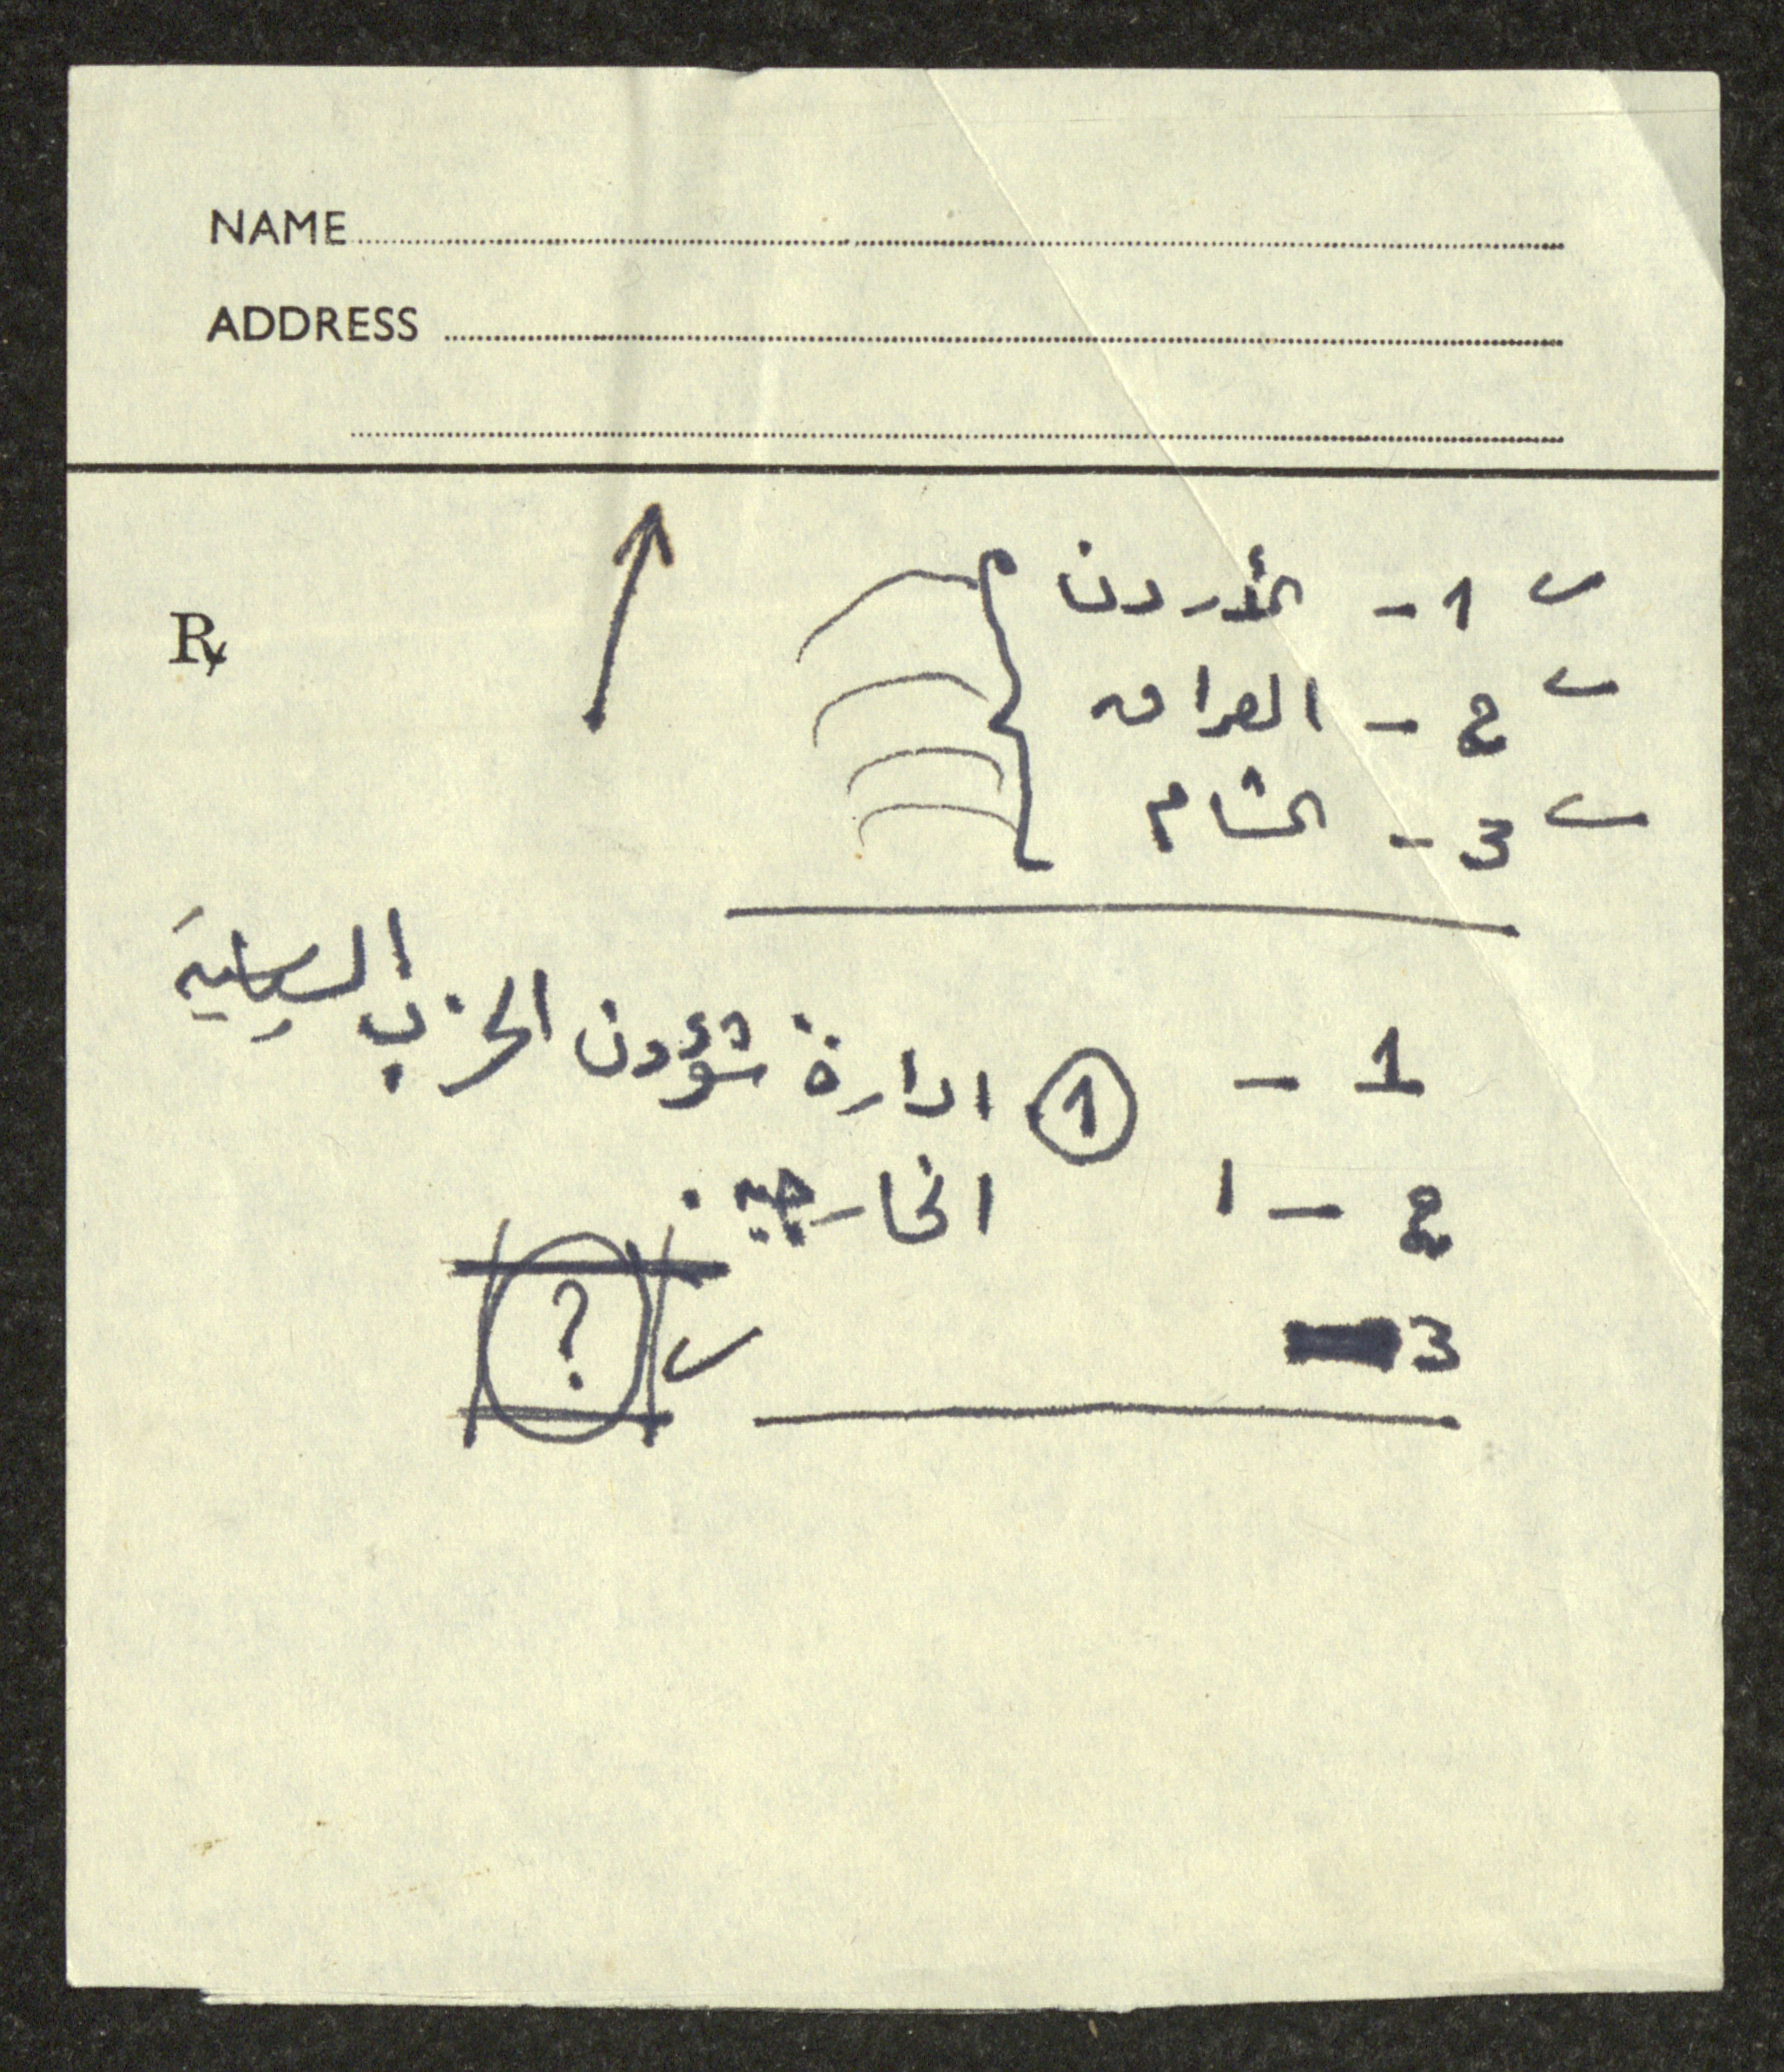 NAME
ADDRESS
℞
1 - الأردن
2 - العراق
3 - الشام
1 - ① ادارة شؤون الحزب السياسية
2 - ا الخارجية .
3
?